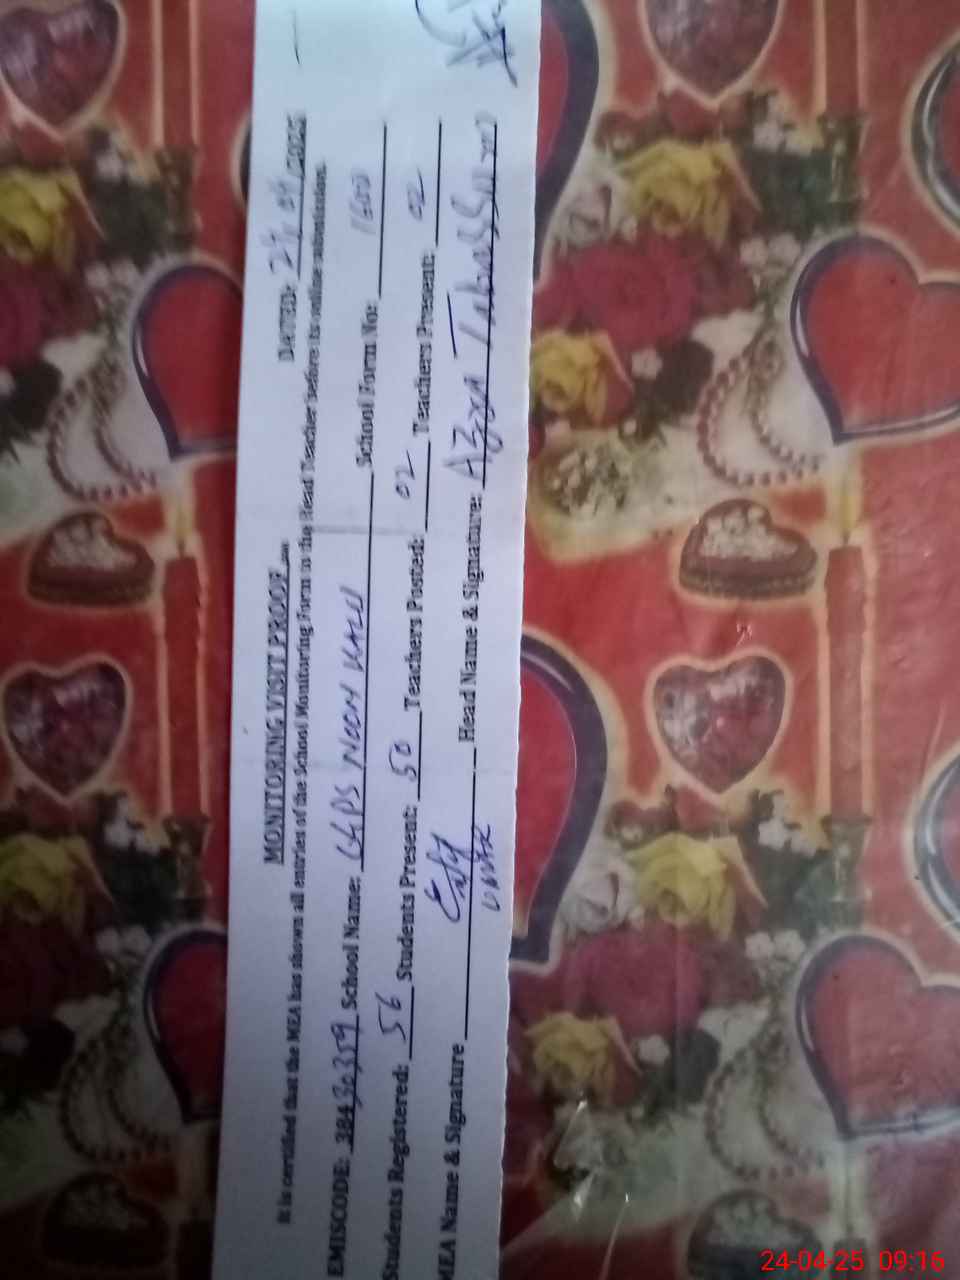 MONITORING VISIT PROOF
DATED: 24/04/2025
It is certified that the MEA has shown all entries of the School Monitoring Form to the Head Teacher before its online submission.
EMISCODE: 38430359 School Name: GGPS NOON KALU School Form No: 1600
Students Registered: 56 Students Present: 50 Teachers Posted: 02 Teachers Present: 02
MEA Name & Signature Head Name & Signature: AZra Tabassum
24-04-25 09:16